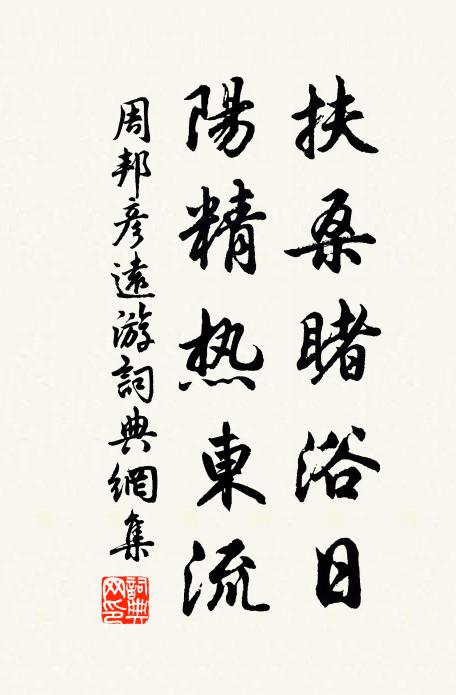 扶桑睹浴日
陽精热東流
周邦彦遠游詞典網集
詞典網印